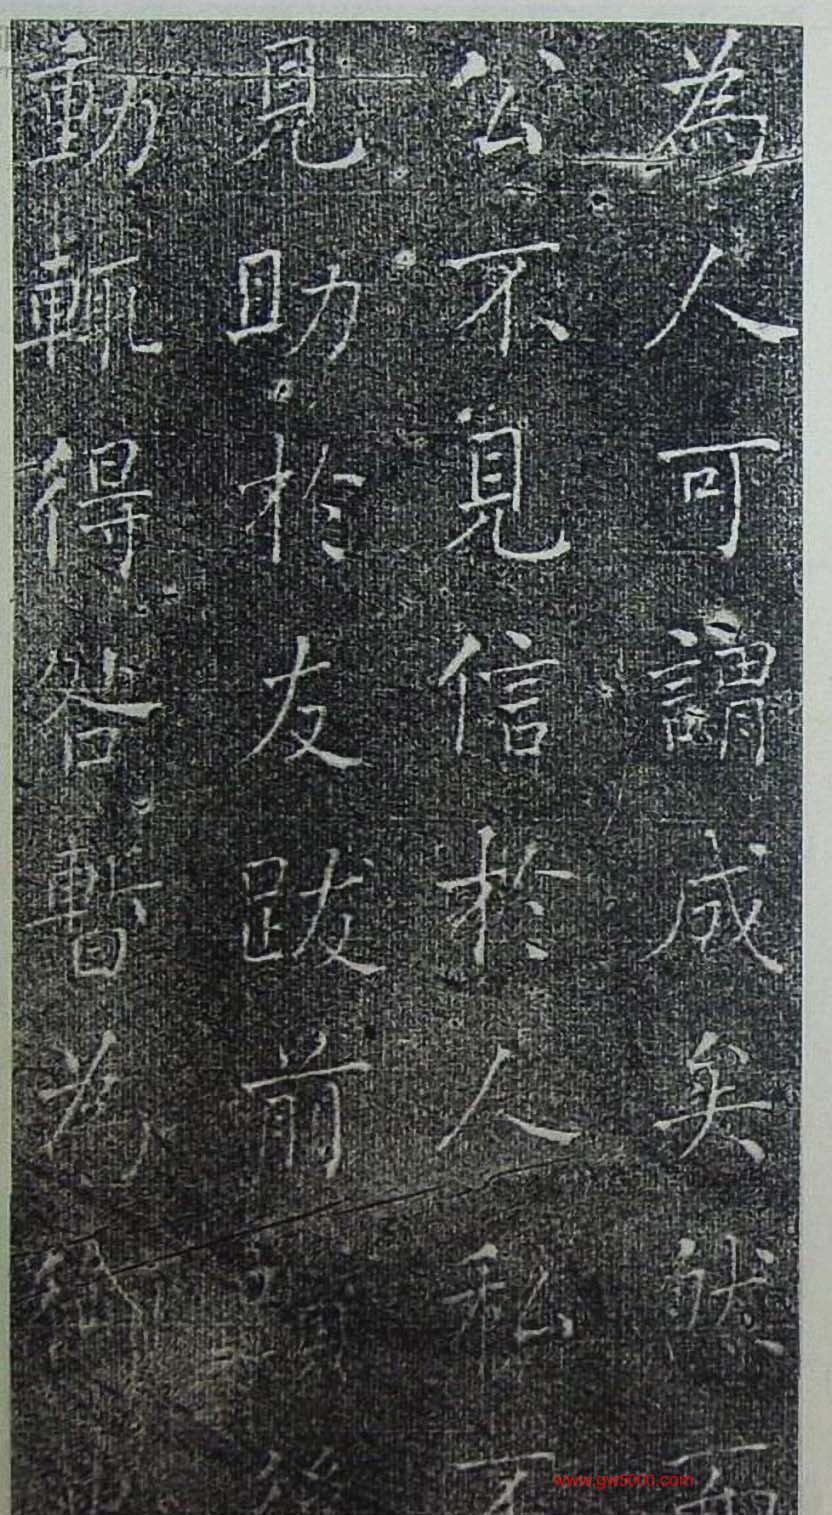 為人可謂成矣然而
公不見信於人私不
見助於友跋前躓後
動輒得咎暫為御
www.gw5000.com